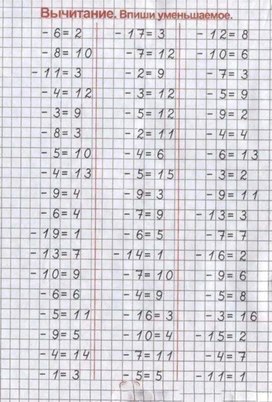 Вычитание. Впиши уменьшаемое.
- 6 = 2 - 17 = 3 - 12 = 8
- 8 = 10 - 7 = 12 - 10 = 6
- 11 = 3 - 2 = 9 - 7 = 3
- 4 = 12 - 3 = 12 - 5 = 9
- 3 = 9 - 5 = 12 - 9 = 2
- 8 = 3 - 2 = 11 - 4 = 4
- 5 = 10 - 4 = 6 - 6 = 13
- 4 = 13 - 5 = 15 - 3 = 2
- 9 = 4 - 9 = 3 - 9 = 11
- 6 = 4 - 7 = 9 - 13 = 3
- 19 = 1 - 6 = 5 - 7 = 7
- 13 = 7 - 14 = 1 - 16 = 2
- 10 = 9 - 7 = 10 - 9 = 6
- 6 = 6 - 4 = 9 - 5 = 8
- 5 = 11 - 16 = 3 - 3 = 16
- 9 = 5 - 10 = 4 - 15 = 2
- 4 = 14 - 7 = 11 - 4 = 7
- 1 = 3 - 5 = 5 - 11 = 1